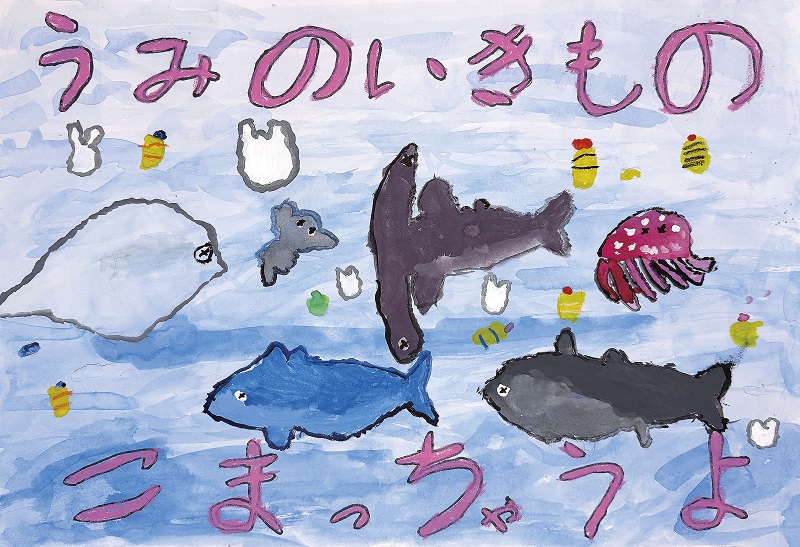 うみのいきもの
こまっちゃうよ